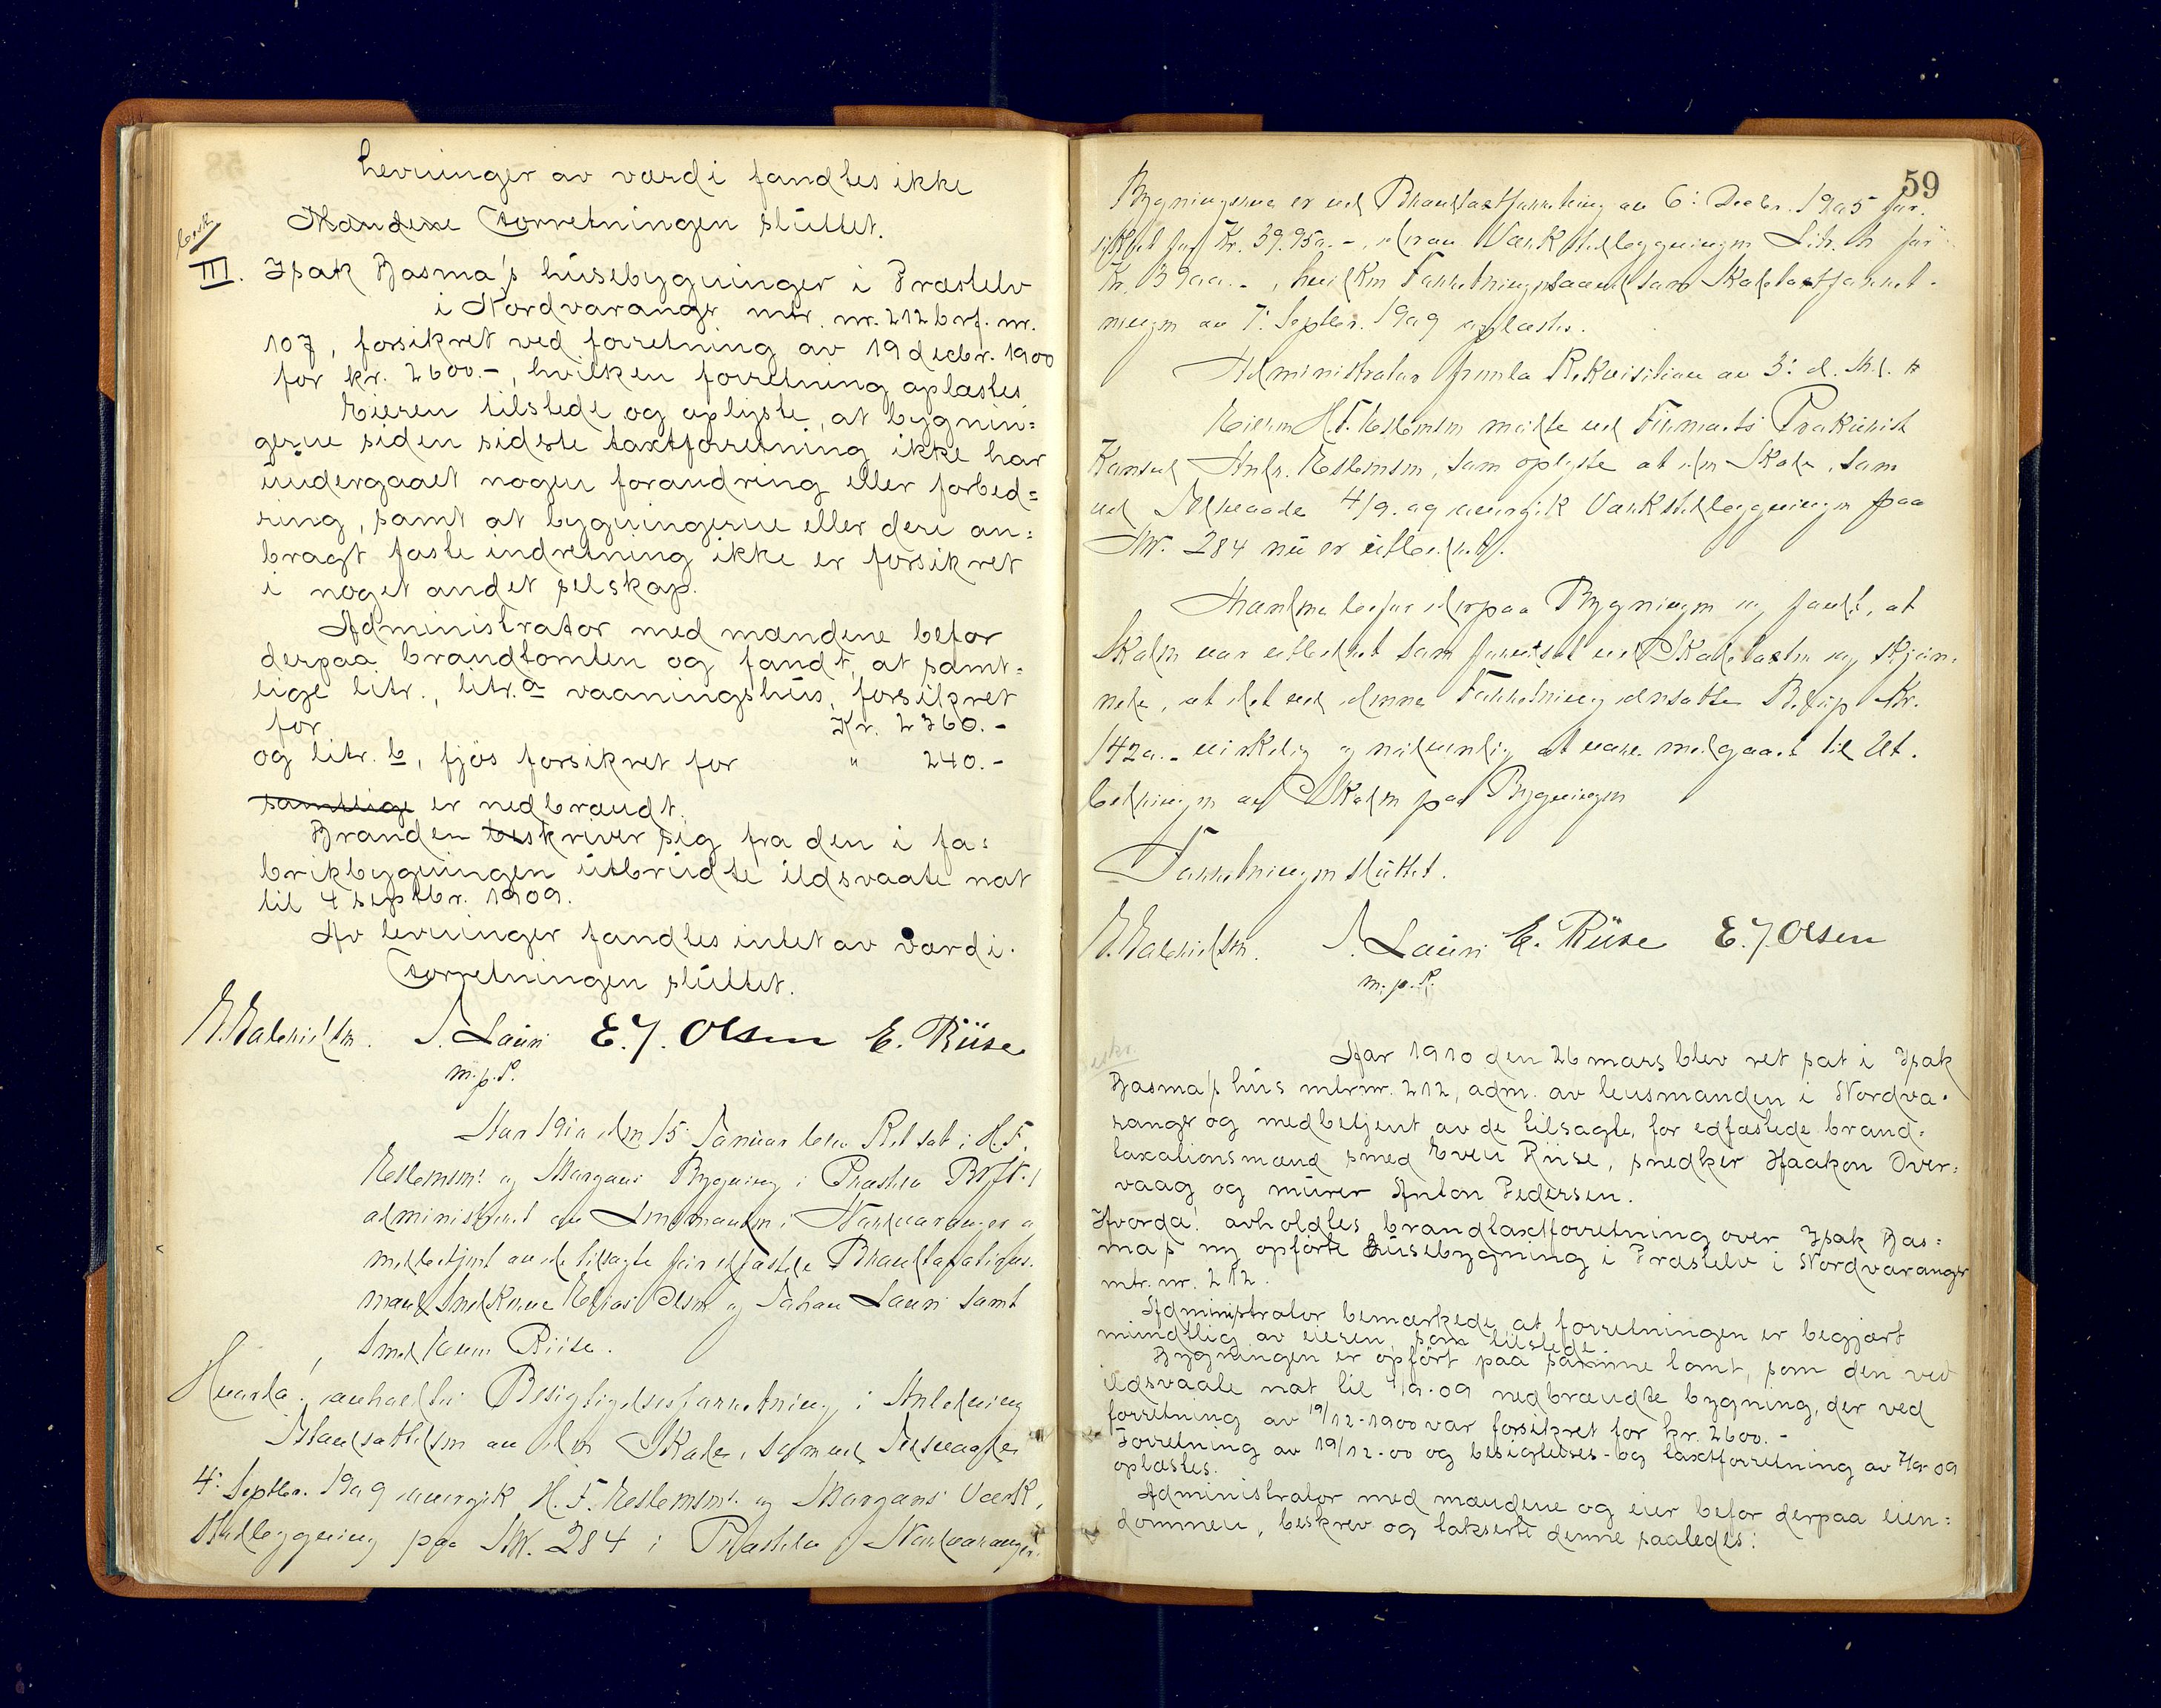 Levninger av værdi fandtes ikke
Mændene Forretningen sluttet.
besk
III. Isak Basma's husebygninger i Præstelv
i Nordvaranger mtr. nr. 212 brf. nr.
107, forsikret ved forretning av 19 decbr. 1900
for kr. 2600.-, hvilken forretning oplæstes.
Eieren tilstede og oplyste, at bygnin=
gerne siden sidste taxtforretning ikke har
undergaaet nogen forandring eller forbed=
ring, samt at bygningerne eller deri an=
bragt faste indretning ikke er forsikret
i noget andet selskap.
Administrator med mændene befor
derpaa brandtomten og fandt, at samt=
lige litr., litr. a vaaningshus, forsikret
for Kr. 2360.-
og litr. b, fjøs forsikret for " 240.-
samtlige er nedbrændt.
Branden beskriver sig fra den i fa=
brikbygningen utbrudte ildsvaate nat
til 4 septbr. 1909.
Av levninger fandtes intet av værdi.
Forretningen sluttet.
J. Lauri E. J. Olsen E. Riise
m. p. P.
Aar 1910 den 15: Januar blev Ret sat i H. F.
Esbensens og Morgans Bygning i Præstelv Brf. N. 1
administreret av Lensmanden i Nordvaranger og
medbetjent av de tilsagte før edfæstede Brandtaxations-
mænd Snedkerne Elias Olsen og Johan Lauri samt
Smed Even Riise.
Hvorda! avholdtes Besigtigelsesforretning i Anledning
Istandsættelsen av den Skade, som ved Ildsvaade
4: Septbr. 1909 overgik H. F. Esbensens og Morgans Værk-
stedbygning paa M.N. 284 i Præstelv i Nordvaranger.
59
Bygningerne er ved Brandtaxtforretning av 6: Decbr. 1905 for-
sikret for Kr. 39.950.-, derav Værkstedbygningen Litr. h for
Kr. 3900.-, hvilken Forretning saavelsom Skadetaxtforret-
ningen av 7: Septbr. 1909 oplæstes.
Administrator fremla Rekvisition av 3: d. M.
Eieren H. F. Esbensen mødte ved Firmaets Prokurist
Konsul Andr. Esbensen, som oplyste at den Skade, som
ved Ildsvaade 4/9. 09 overgik Værkstedbygningen paa
M.N. 284 nu er utbedret.
Mændene befor derpaa Bygningen og fandt, at
Skaden var utbedret som forutsat ved Skadetaxten og skjøn-
nede, at det ved denne Forretning ansatte Beløp Kr.
1420.- virkelig og nødvendig at være medgaaet til Ut-
bedringen av Skaden paa Bygningen
Forretningen sluttet.
J. Lauri E. Riise E. J. Olsen
m. p. P.
Aar 1910 den 26 mars blev ret sat i Isak
Basma's hus mtrnr. 212, adm. av lensmanden i Nordva-
ranger og medbetjent av de tilsagte, for edfæstede brand-
taxationsmænd smed Even Riise, snedker Haakon Over=
vaag og murer Anton Pedersen.
Hvorda! avholdtes brandtaxtforretning over Isak Bas=
ma's ny opførte husebygning i Præstelv i Nordvaranger
mtr. nr. 212.
Administrator bemærkede at forretningen er begjært
mundtlig av eieren, som tilstede.
Bygningen er opført paa samme tomt, som den ved
ildsvaate nat til 4/9-09 nedbrændte bygning, der ved
forretning av 19/12-1900 var forsikret for kr. 2600.-
Forretning av 19/12-00 og besigtelses- og taxtforretning av 7/9-09
oplæstes.
Administrator med mændene og eier befor derpaa eien=
dommen, beskrev og takserte denne saaledes: